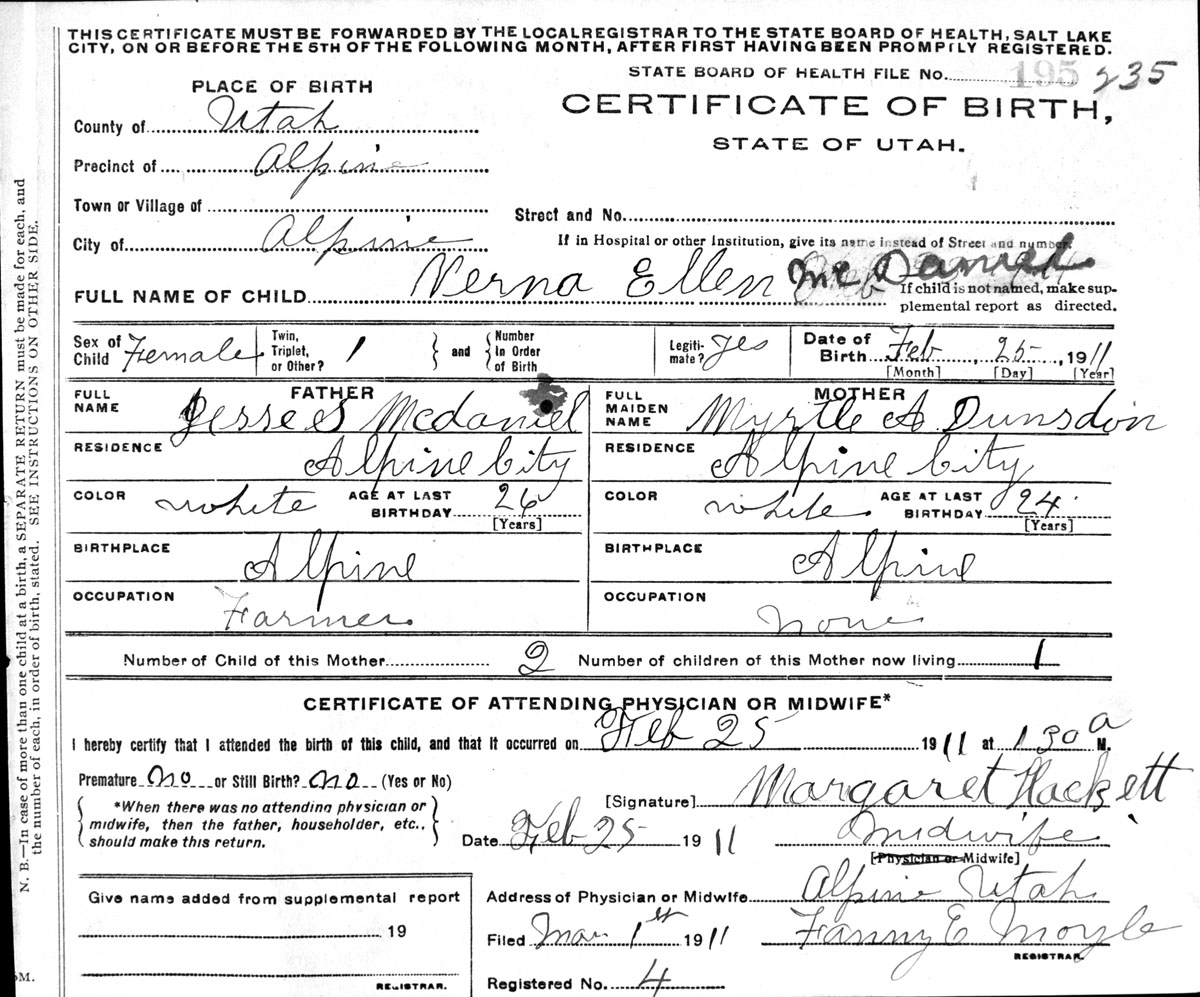 THIS CERTIFICATE MUST BE FORWARDED BY THE LOCAL REGISTRAR TO THE STATE BOARD OF HEALTH, SALT LAKE
CITY, ON OR BEFORE THE 5TH OF THE FOLLOWING MONTH, AFTER FIRST HAVING BEEN PROMPTLY REGISTERED.
STATE BOARD OF HEALTH FILE No. 195 235
PLACE OF BIRTH
CERTIFICATE OF BIRTH,
STATE OF UTAH.
County of Utah
Precinct of Alpine
Town or Village of
Street and No.
City of Alpine
If in Hospital or other Institution, give its name instead of Street and number.
FULL NAME OF CHILD Verna Ellen McDaniel
If child is not named, make sup-
plemental report as directed.
Sex of Child Female
Twin, Triplet, or Other? 1 and Number In Order of Birth
Legiti-mate? Yes
Date of Birth Feb, 25, 1911
[Month] [Day] [Year]
FATHER
FULL NAME Jesse S Mcdaniel
RESIDENCE Alpine City
COLOR white AGE AT LAST BIRTHDAY 26
[Years]
BIRTHPLACE Alpine
OCCUPATION Farmer
MOTHER
FULL MAIDEN NAME Myrtle A Dunsdon
RESIDENCE Alpine City
COLOR white AGE AT LAST BIRTHDAY 24
[Years]
BIRTHPLACE Alpine
OCCUPATION None
Number of Child of this Mother 2 Number of children of this Mother now living 1
CERTIFICATE OF ATTENDING PHYSICIAN OR MIDWIFE*
I hereby certify that I attended the birth of this child, and that it occurred on Feb 25 1911 at 130 a M.
Premature no or Still Birth? no (Yes or No)
*When there was no attending physician or
midwife, then the father, householder, etc.,
should make this return.
[Signature] Margaret Hackett
Date Feb 25 1911 Midwife
[Physician or Midwife]
Address of Physician or Midwife Alpine Utah
Filed Mar 1st 1911 Fanny E Moyle
REGISTRAR.
Registered No. 4
Give name added from supplemental report
19
REGISTRAR.
N. B.—In case of more than one child at a birth, a SEPARATE RETURN must be made for each, and
the number of each, in order of birth, stated. SEE INSTRUCTIONS ON OTHER SIDE.